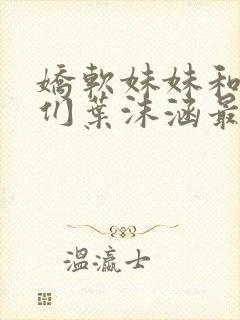 嬌軟妹妹和
们葉沫涵最
溫瀛士